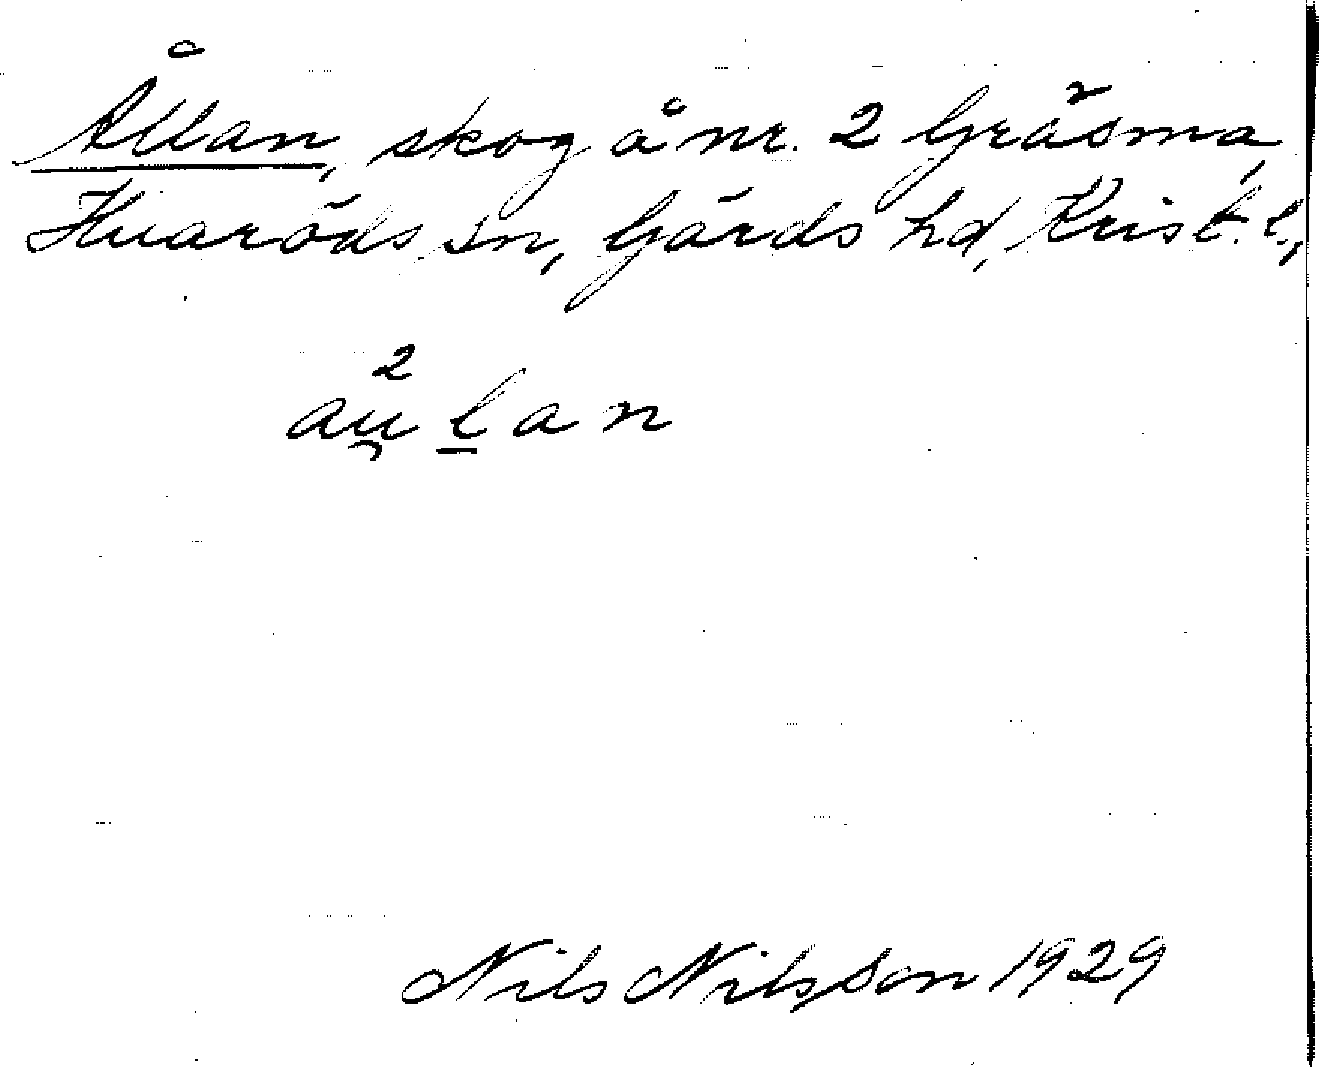 Ållan, skog å nr. 2 Gräsma,
Huaröds sn, Gärds hd, Krist. l.,
2
au̯l̲an
Nils Nilsson 1929